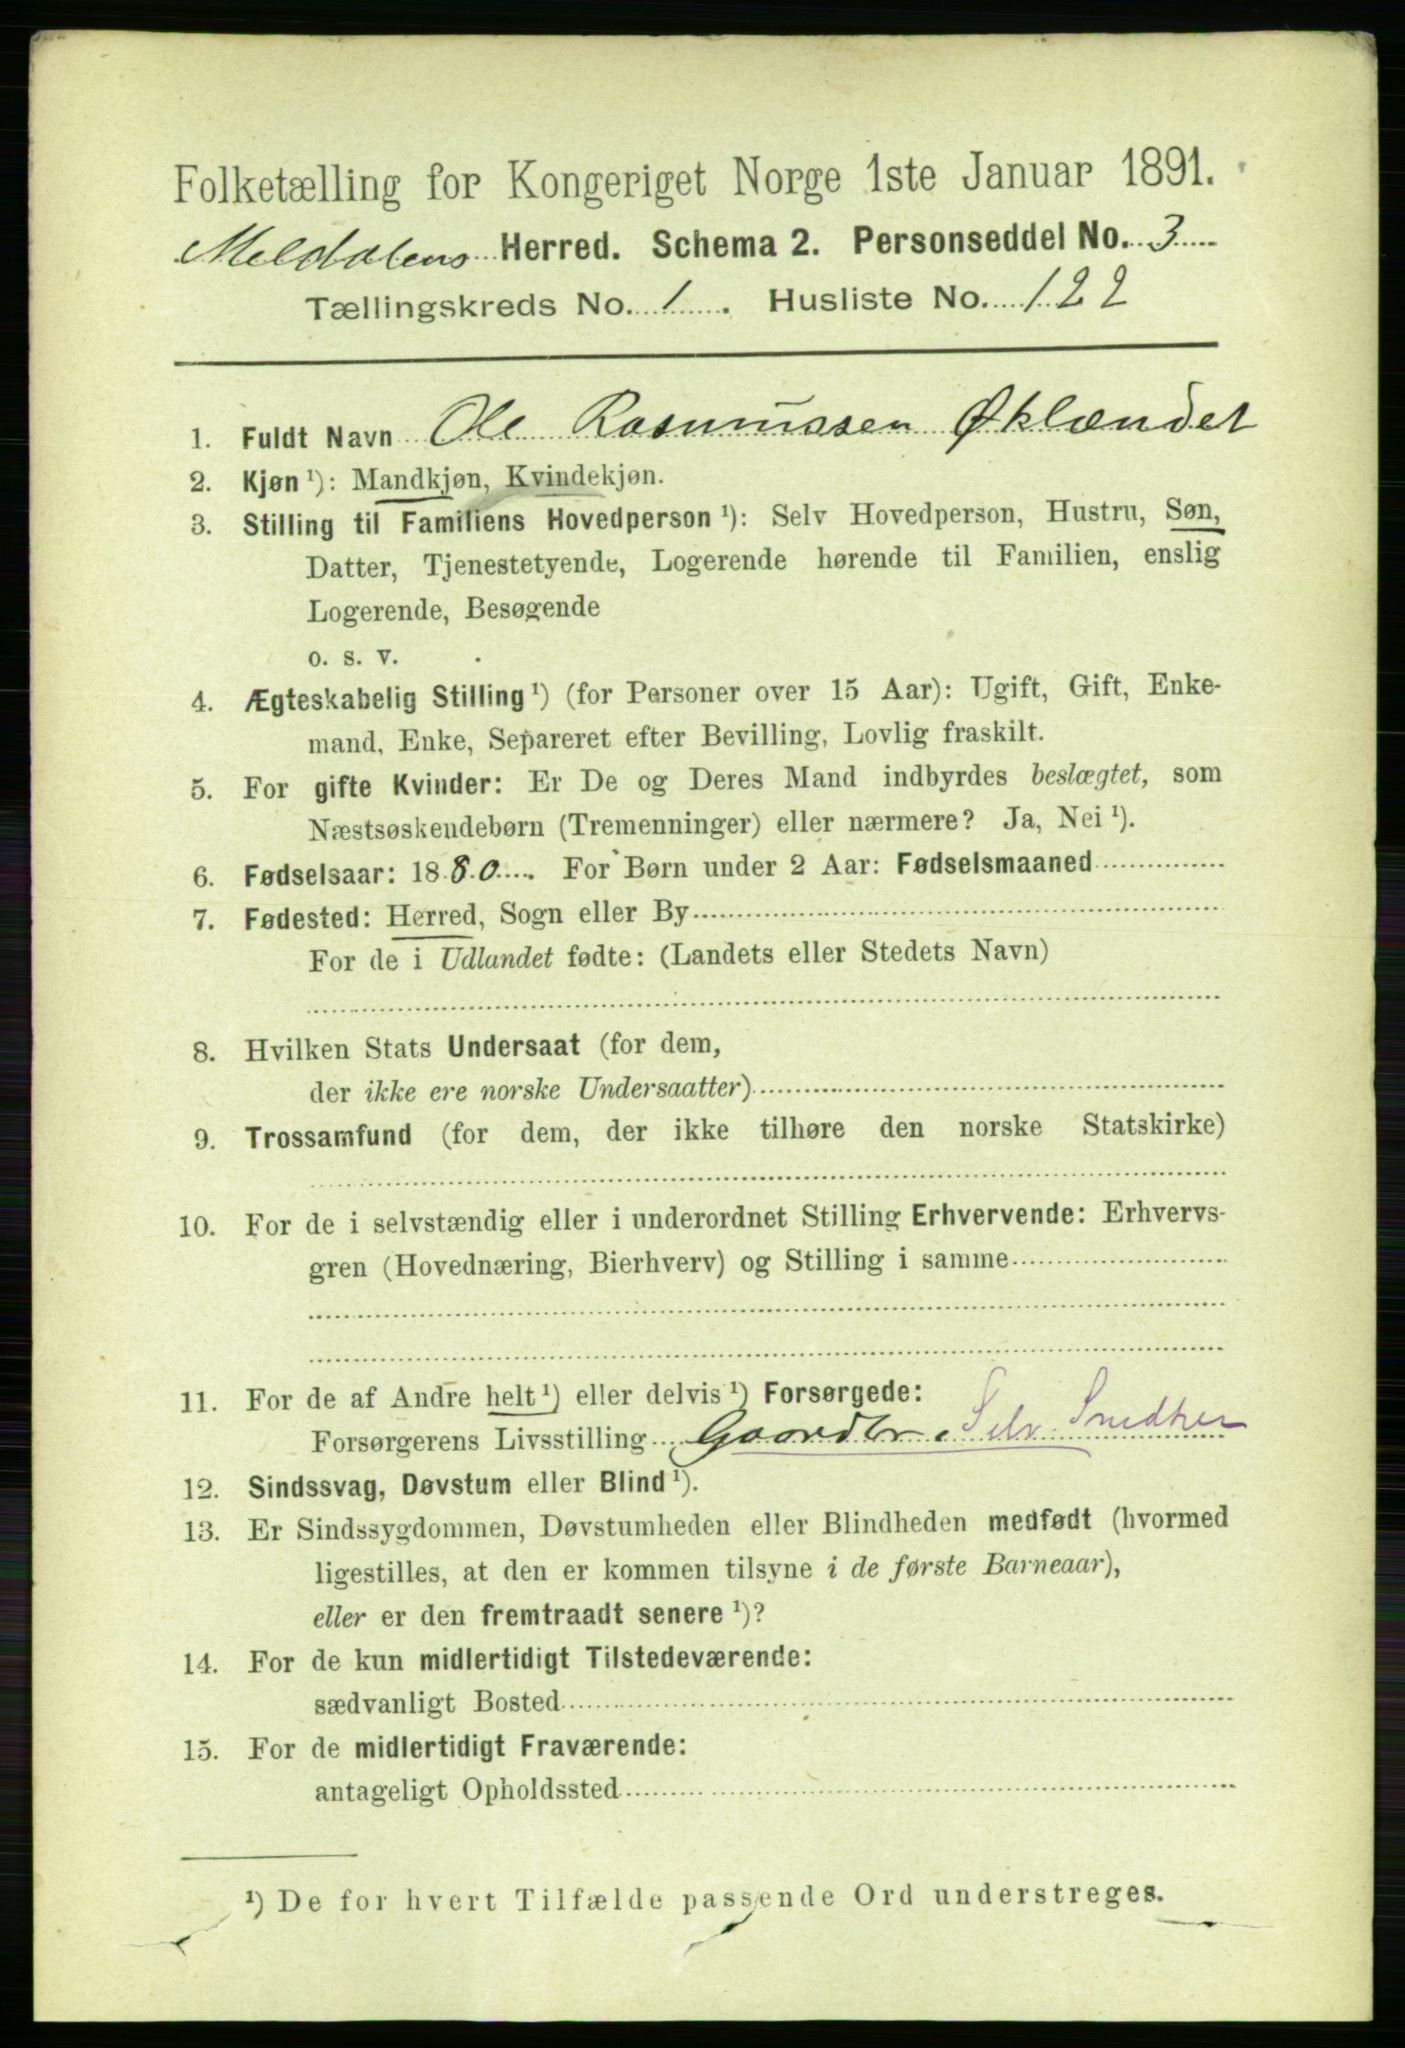 Folketælling for Kongeriget Norge 1ste Januar 1891.
Meldalens Herred. Schema 2. Personseddel No. 3
Tællingskreds No. 1. Husliste No. 122
1. Fuldt Navn Ole Rasmussen Øklændet
2. Kjøn ¹): Mandkjøn, Kvindekjøn.
3. Stilling til Familiens Hovedperson ¹): Selv Hovedperson, Hustru, Søn,
Datter, Tjenestetyende, Logerende hørende til Familien, enslig
Logerende, Besøgende
o. s. v.
4. Ægteskabelig Stilling ¹) (for Personer over 15 Aar): Ugift, Gift, Enke-
mand, Enke, Separeret efter Bevilling, Lovlig fraskilt.
5. For gifte Kvinder: Er De og Deres Mand indbyrdes beslægtet, som
Næstsøskendebørn (Tremenninger) eller nærmere? Ja, Nei ¹).
6. Fødselsaar: 1880. For Børn under 2 Aar: Fødselsmaaned
7. Fødested: Herred, Sogn eller By
For de i Udlandet fødte: (Landets eller Stedets Navn)
8. Hvilken Stats Undersaat (for dem,
der ikke ere norske Undersaatter)
9. Trossamfund (for dem, der ikke tilhøre den norske Statskirke)
10. For de i selvstændig eller i underordnet Stilling Erhvervende: Erhvervs-
gren (Hovednæring, Bierhverv) og Stilling i samme
11. For de af Andre helt ¹) eller delvis ¹) Forsørgede:
Forsørgerens Livsstilling Gaardbr. Selv Snedker
12. Sindssvag, Døvstum eller Blind ¹).
13. Er Sindssygdommen, Døvstumheden eller Blindheden medfødt (hvormed
ligestilles, at den er kommen tilsyne i de første Barneaar),
eller er den fremtraadt senere ¹)?
14. For de kun midlertidigt Tilstedeværende:
sædvanligt Bosted
15. For de midlertidigt Fraværende:
antageligt Opholdssted
¹) De for hvert Tilfælde passende Ord understreges.